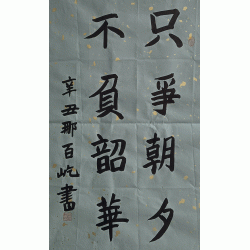 只爭朝夕
不負韶華
辛丑那百屹書